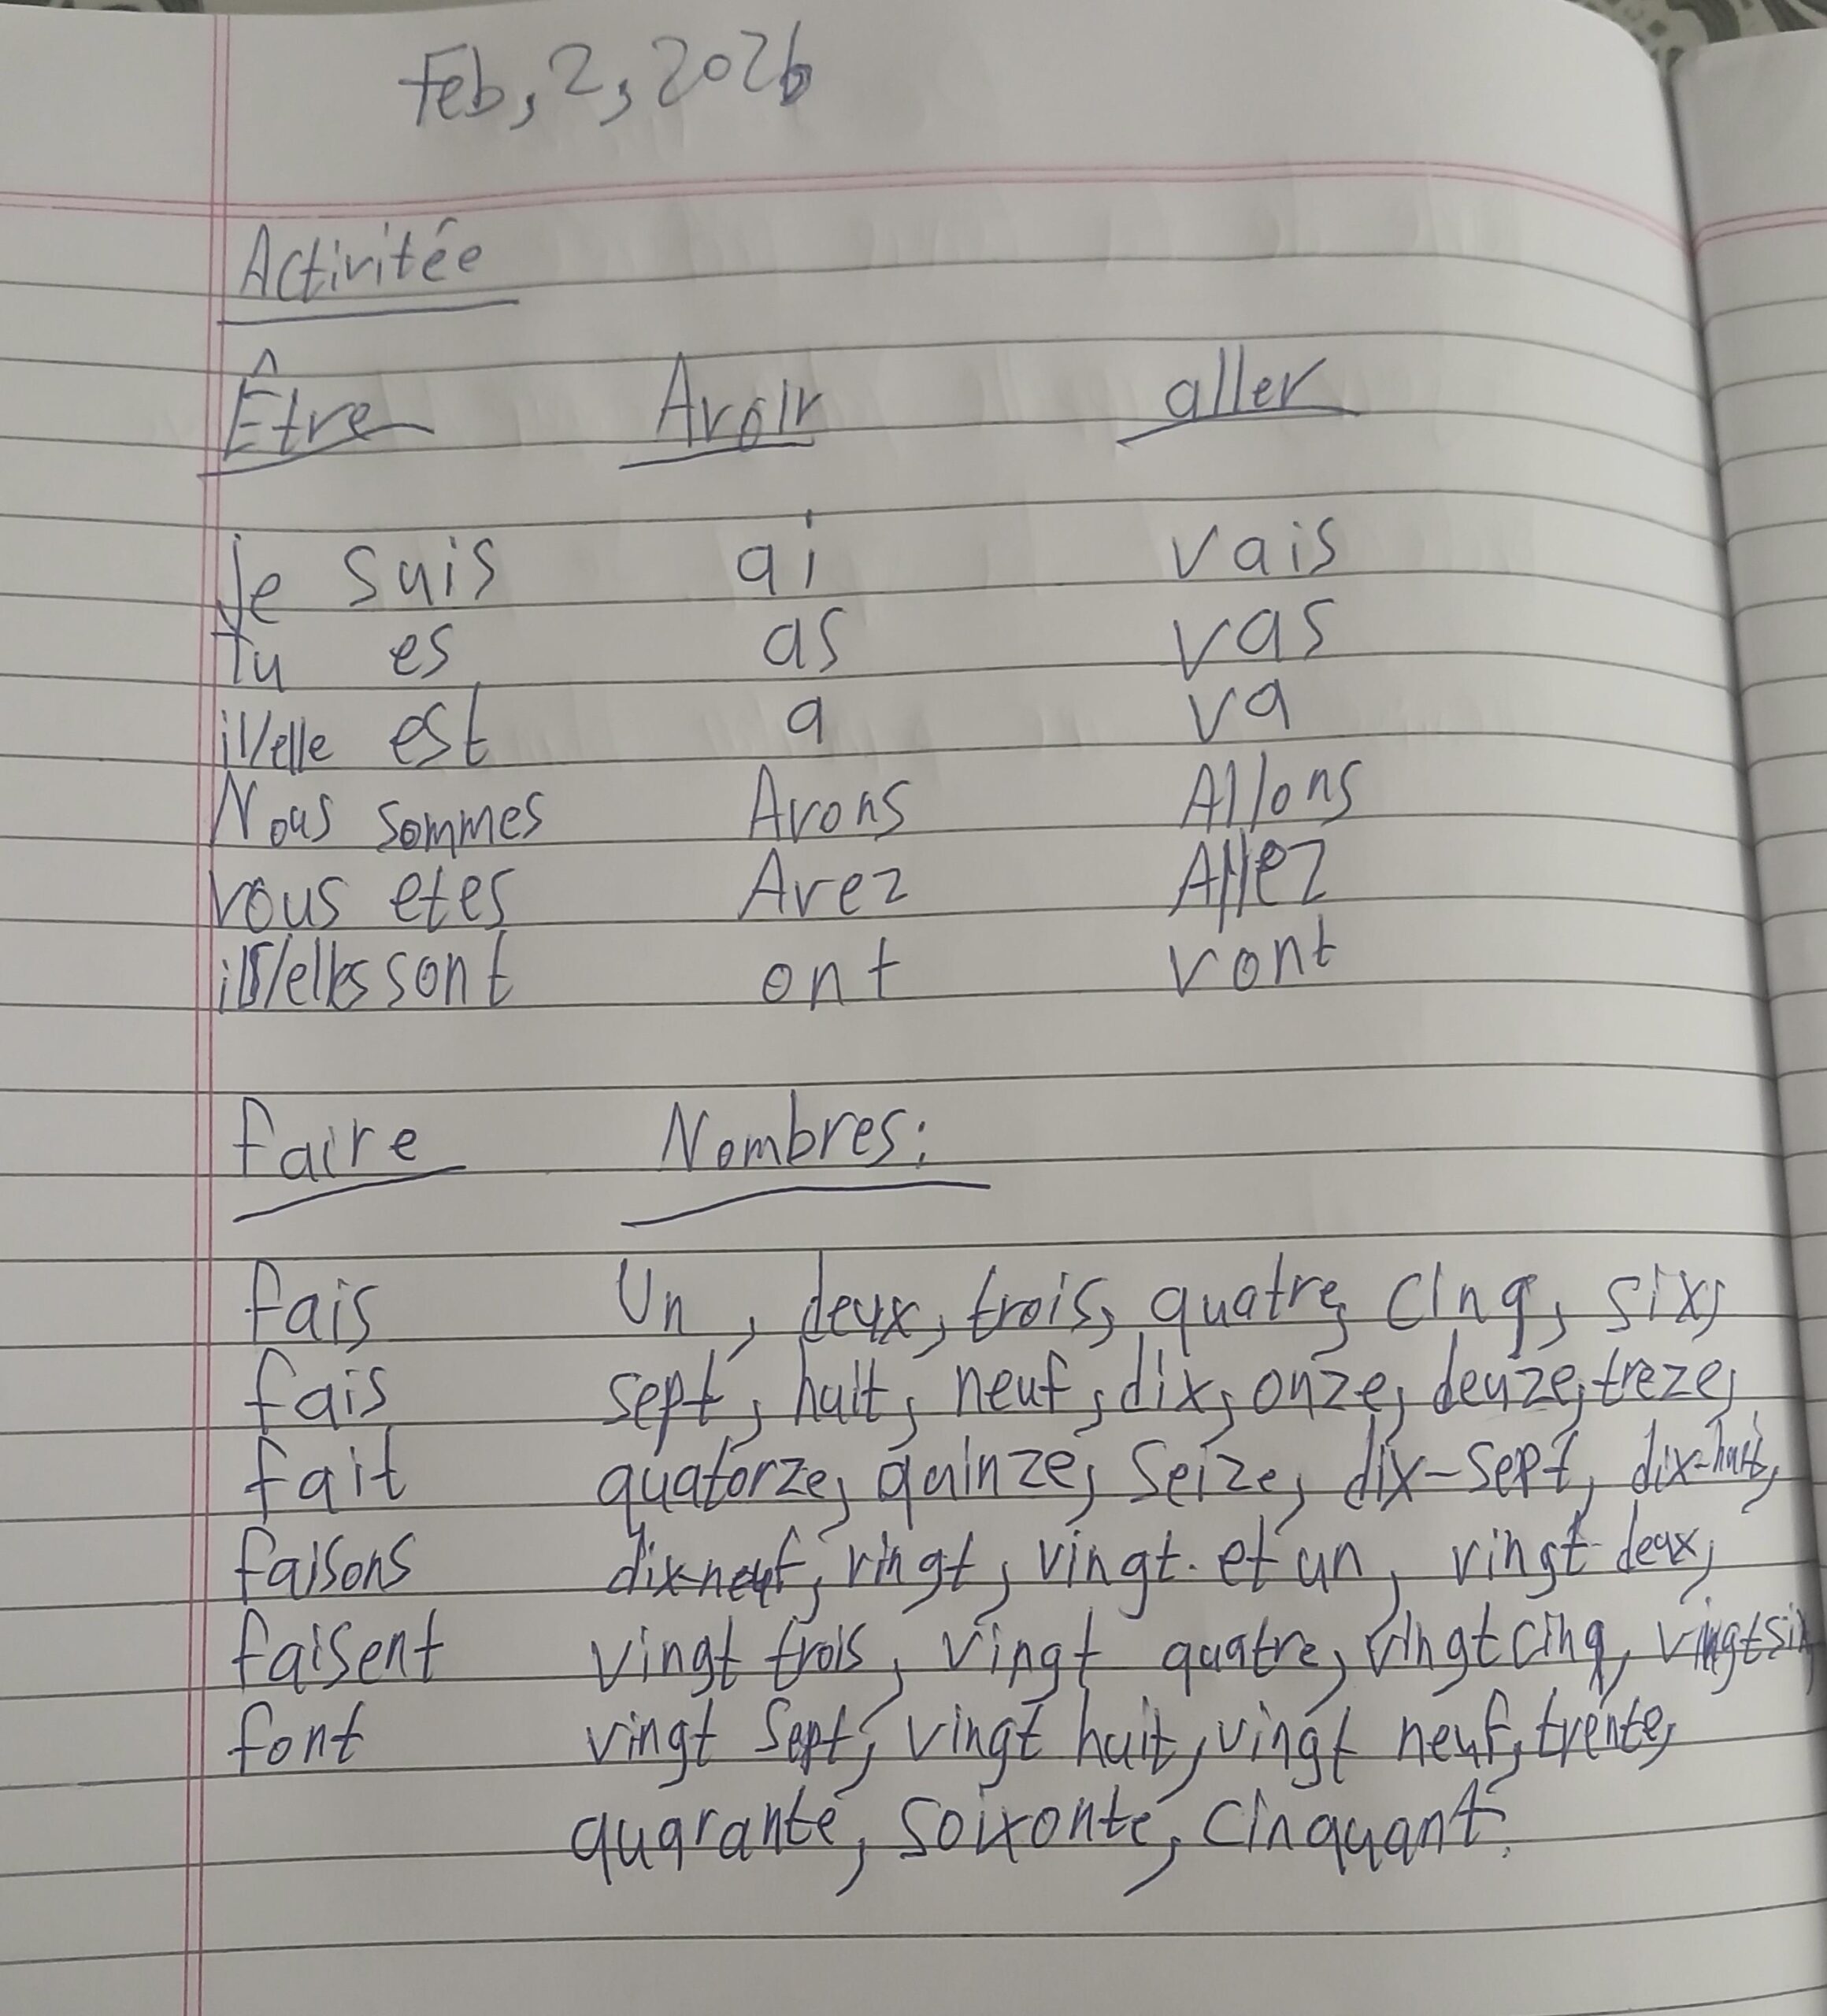 Feb, 2, 2026
Activitée
Être Avoir aller
Je suis ai vais
Tu es as vas
il/elle est a va
Nous sommes Avons Allons
vous etes Avez Allez
ils/elles sont ont vont
faire Nombres:
fais Un, deux, trois, quatre, cinq, six,
fais sept, huit, neuf, dix, onze, deuze, treze,
fait quatorze, quinze, Seize, dix-sept, dix-huit,
faisons dix-neuf, vingt, vingt-et un, vingt-deux,
faisent vingt trois, vingt quatre, vingt cinq, vingt six
font vingt Sept, vingt huit, vingt neuf, trente,
quarante, soixonte, cinquant.